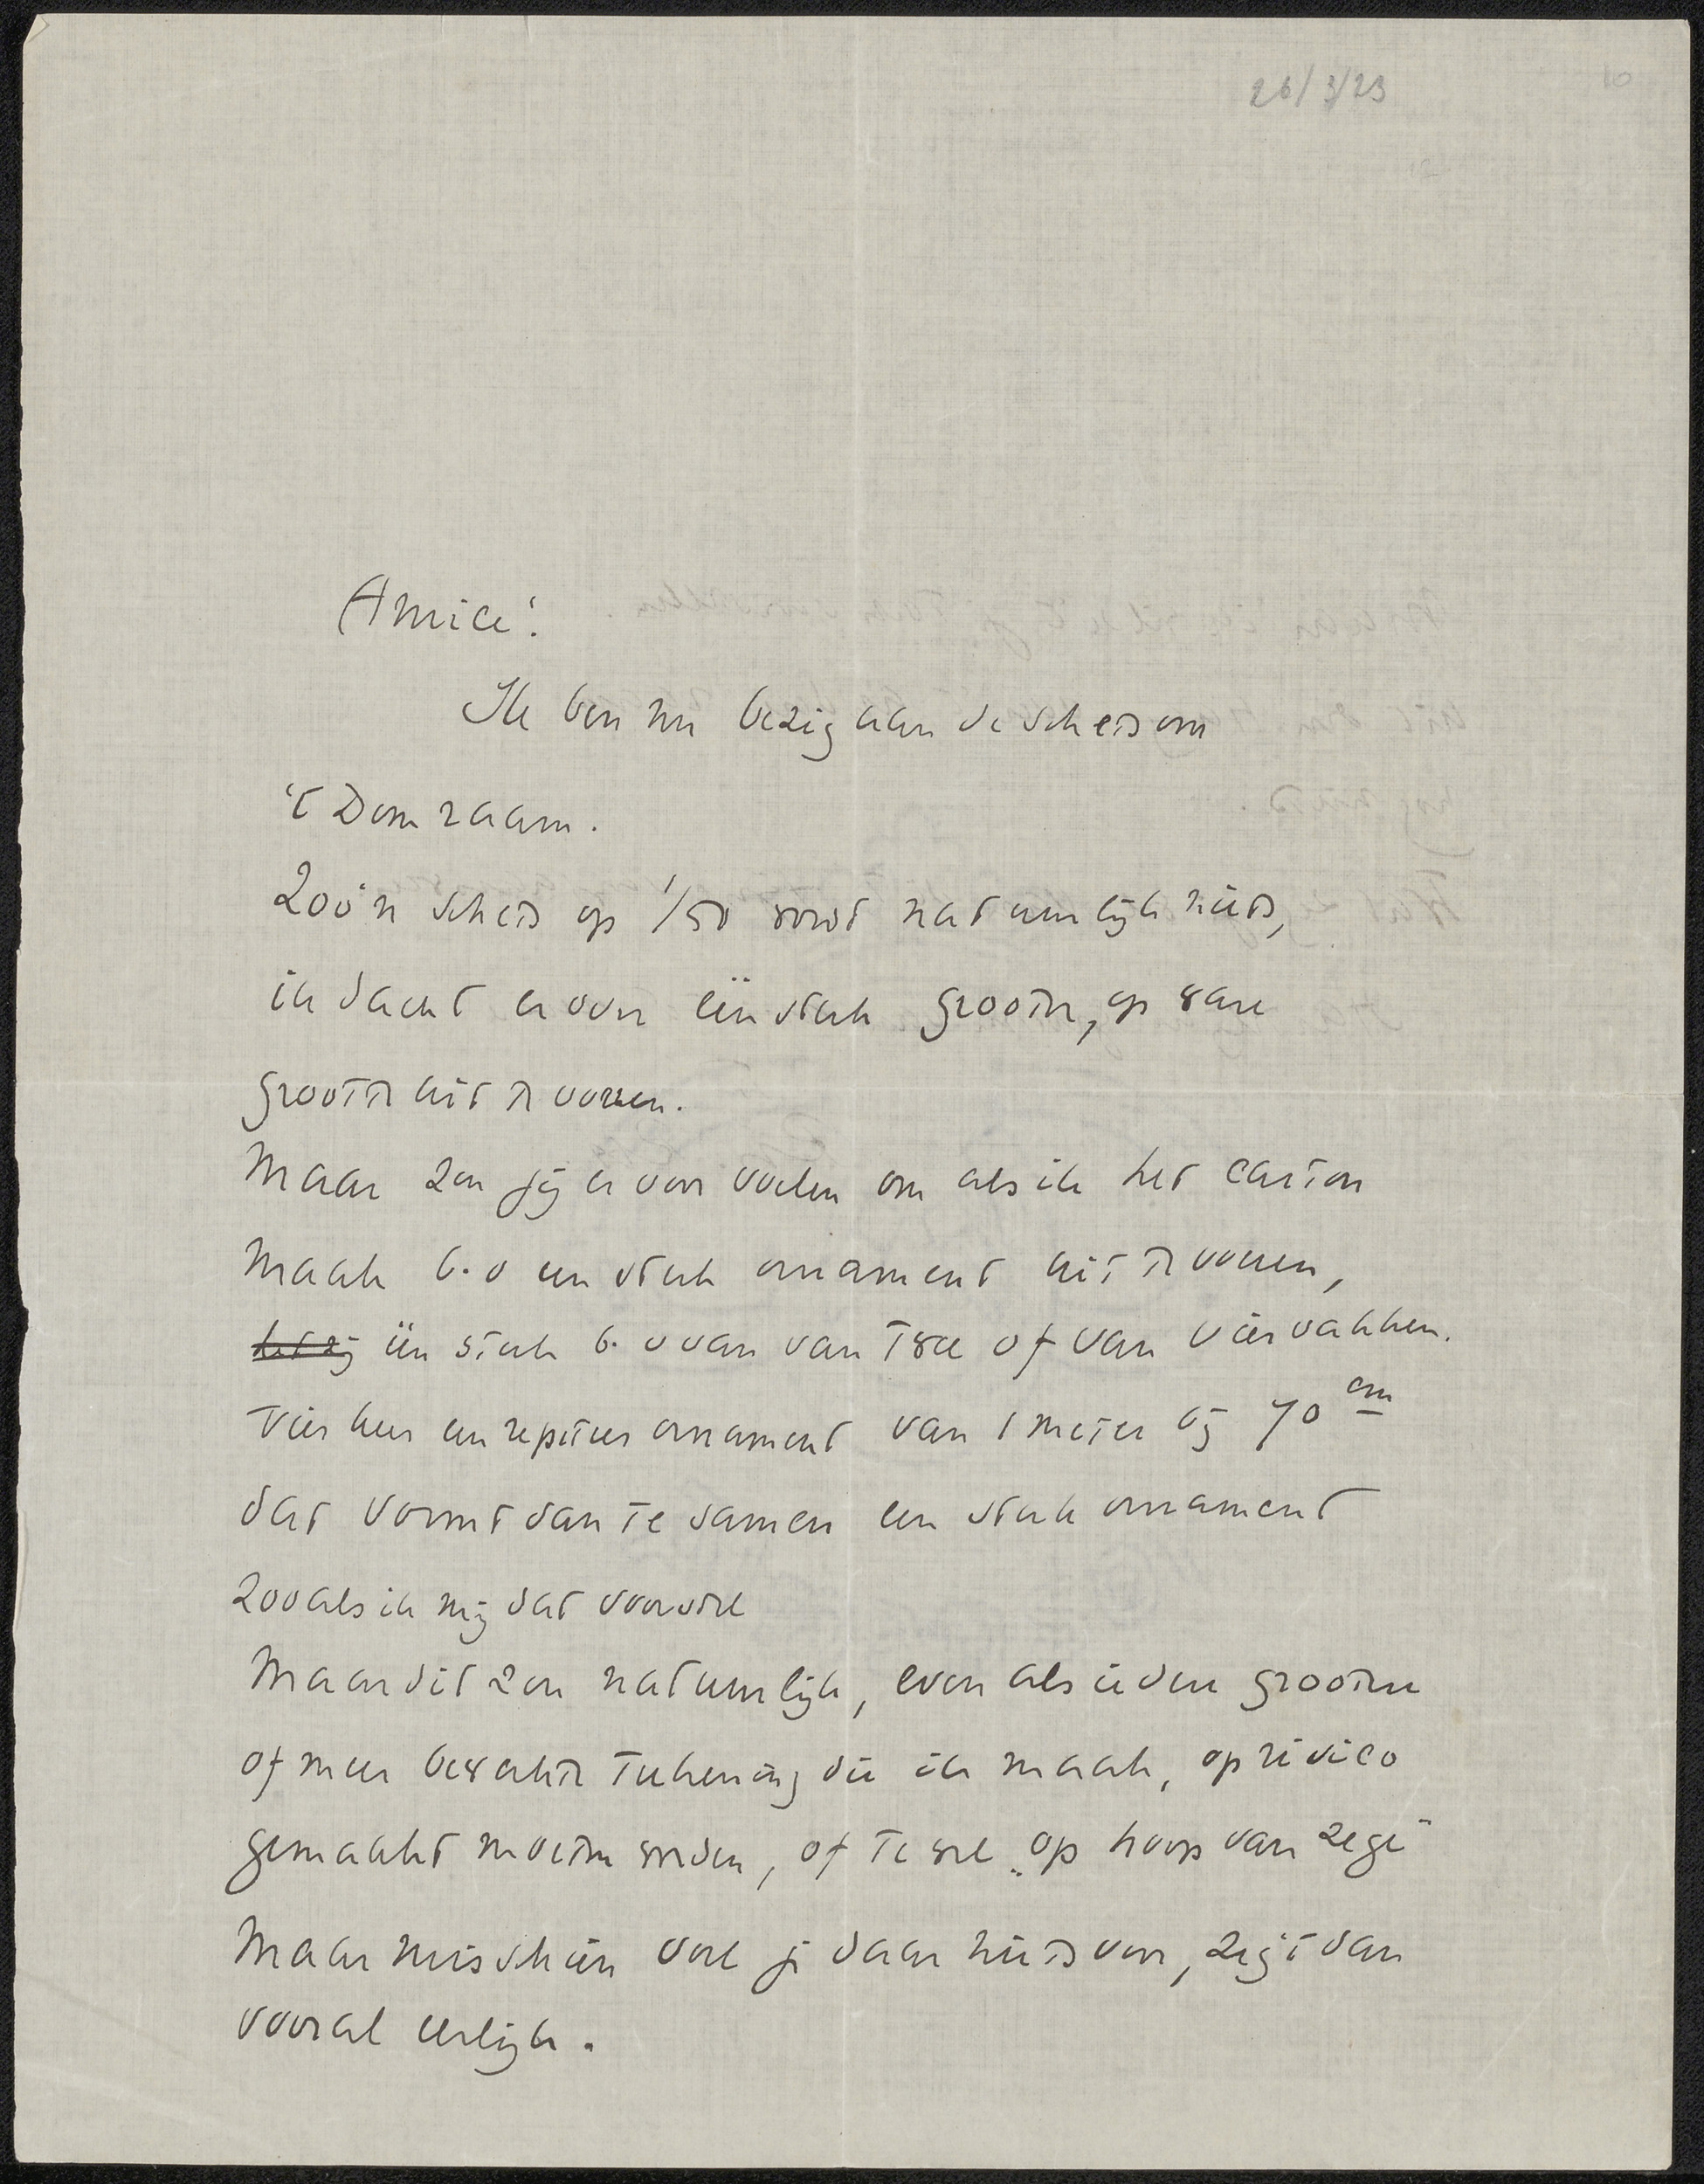 26/3/23
10
Amice!
Ik ben nu bezig aan de schets voor
't Domraam.
Zoo'n schets op 1/50 wordt natuurlijk niets,
ik dacht er voor één stuk grooter, op ware
grootte uit te voeren.
Maar zou jij er voor voelen om als ik het carton
maak b.v een stuk ornament uit te voeren,
het zij één stuk b.v van van twee of van vier vakken.
Vier keer een repeteer ornament van 1 meter bij 70 cm
dat vormt dan te samen een stuk ornament
zooals ik mij dat voorstel
Maar dit zou natuurlijk, even als iedere grootere
of meer bewerkte teekening die ik maak, op risico
gemaakt moeten worden, of te wel „op hoop van zege"
Maar misschien voel je daar niets voor, zeg't dan
vooral eerlijk.